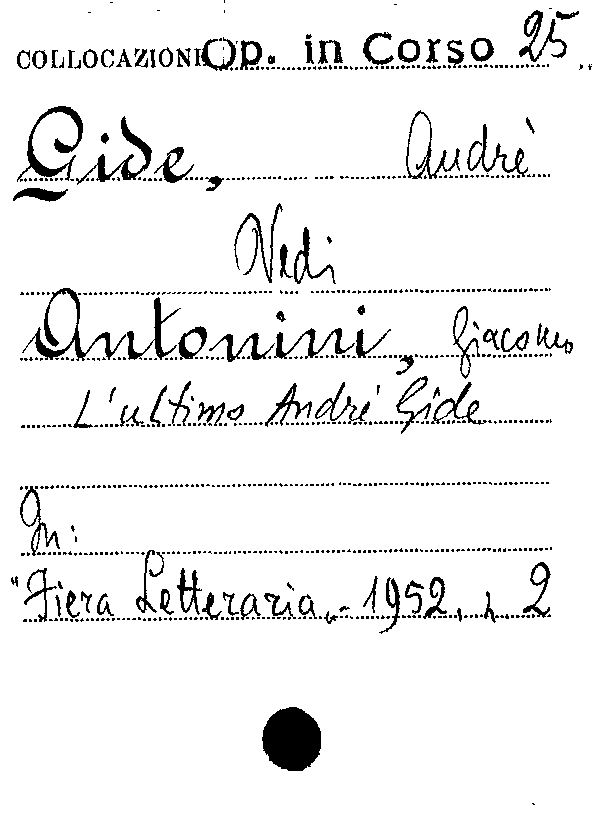 COLLOCAZIONE Op. in Corso 25
Gide, Andrè
Vedi
Antonini, Giacomo
L'ultimo André Gide
In:
"Fiera Letteraria„- 1952. n. 2